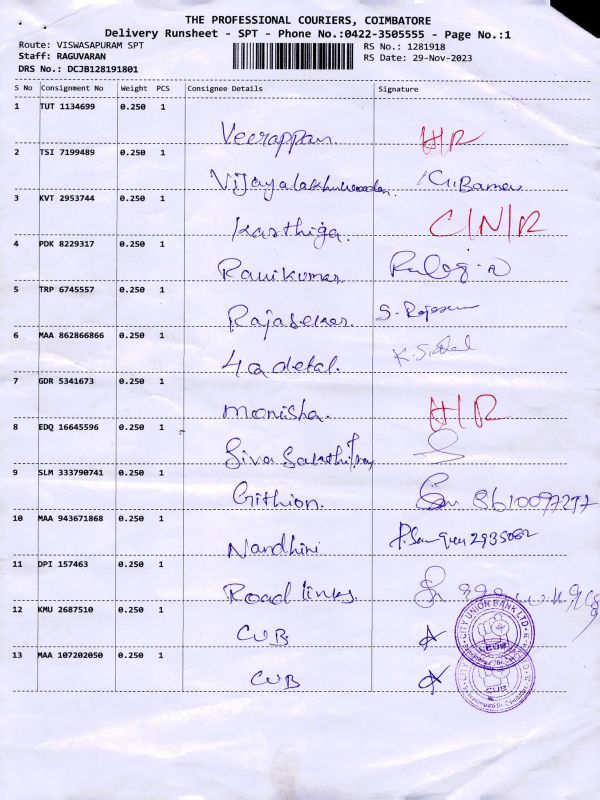 THE PROFESSIONAL COURIERS, COIMBATORE
Delivery Runsheet - SPT - Phone No.:0422-3505555 - Page No.:1
Route: VISWASAPURAM SPT
RS No.: 1281918
Staff: RAGUVARAN
RS Date: 29-Nov-2023
DRS No.: DCJB128191801
S No Consignment No Weight PCS Consignee Details Signature
1 TUT 1134699 0.250 1
Veerappan H/R
2 TSI 7199489 0.250 1
3 KVT 2953744 0.250 1
Karthiga. C/N/R
4 PDK 8229317 0.250 1
Ravikumar
5 TRP 6745557 0.250 1
Rajasekar.
6 MAA 862866866 0.250 1
7 GDR 5341673 0.250 1
monisha. H/R
8 EDQ 16645596 0.250 1
9 SLM 333790741 0.250 1
Githion. 8610097297
10 MAA 943671868 0.250 1
Nandhini
11 DPI 157463 0.250 1
Road links.
12 KMU 2687510 0.250 1
CUB CITY UNION BANK LTD CUB
13 MAA 107202050 0.250 1
CUB CUB